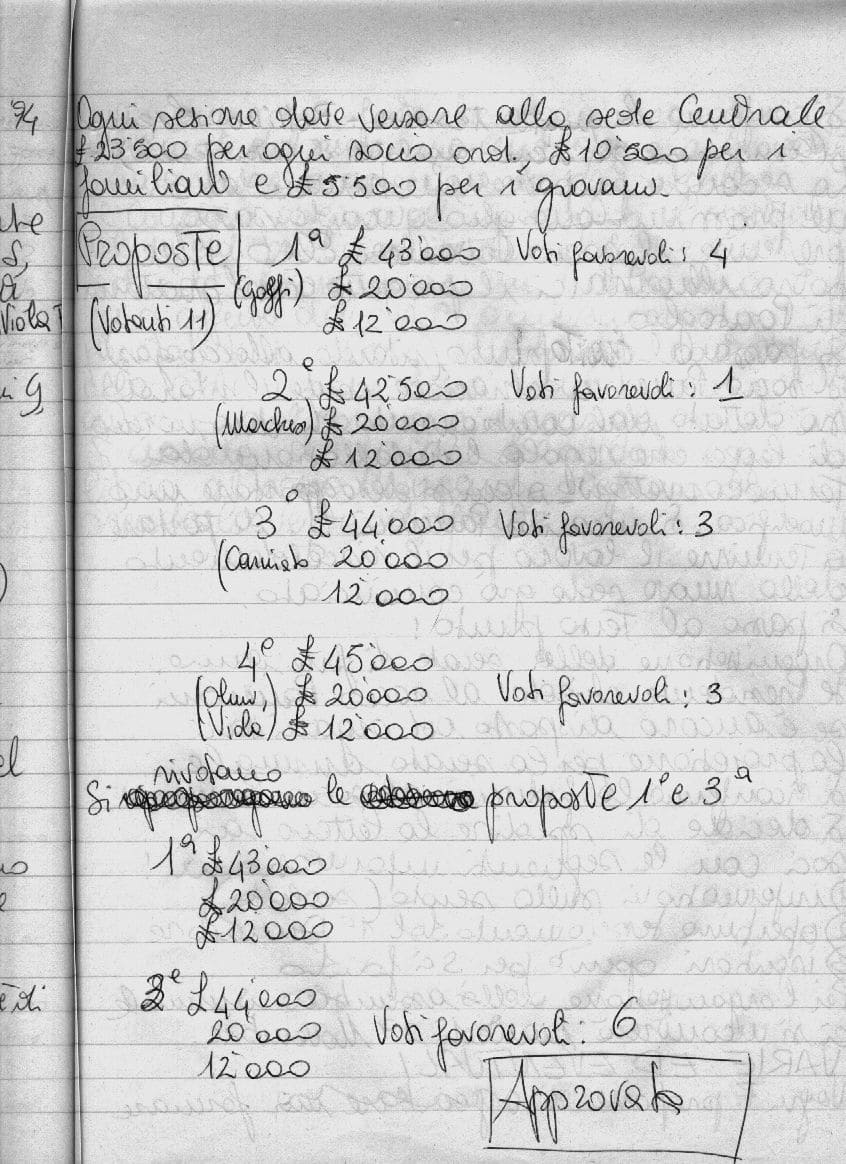 94 Ogni sezione deve versare alla sede Centrale
£ 23'500 per ogni socio ord. £ 10'500 per i
familiari e £ 5'500 per i giovani.
Proposte 1ª £ 43'000 Voti favorevoli: 4
(Goffi) £ 20'000
(Votanti 11) £ 12'000
2ª £ 42'500 Voti favorevoli: 1
£ 20'000
£ 12'000
3ª £ 44'000 Voti favorevoli: 3
20'000
12'000
4ª £ 45'000
£ 20'000 Voti favorevoli: 3
(Viola) £ 12'000
rivotano
Si le proposte 1ª e 3ª
1ª £ 43'000
£ 20'000
£ 12'000
3ª £ 44'000
20'000 Voti favorevoli: 6
12'000
Approvata